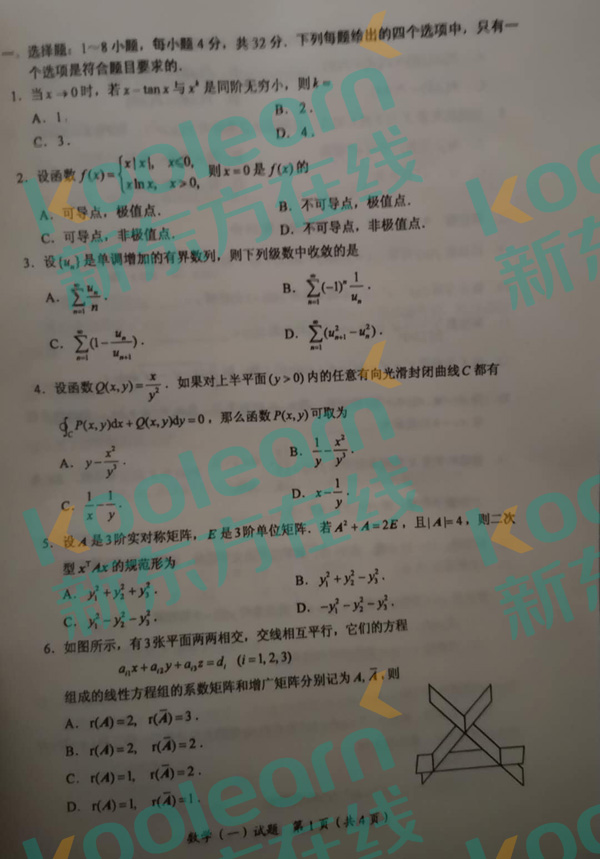 一、选择题：1～8小题，每小题4分，共32分．下列每题给出的四个选项中，只有一
个选项是符合题目要求的．
1．当x→0时，若x−tan x与x^k是同阶无穷小，则k=
A．1． B．2．
C．3． D．4．
2．设函数f(x)={x|x|, x⩽0, x ln x, x>0, 则x=0是f(x)的
A．可导点，极值点． B．不可导点，极值点．
C．可导点，非极值点． D．不可导点，非极值点．
3．设{u_n}是单调增加的有界数列，则下列级数中收敛的是
A．∑_{n=1}^{∞} u_n/n． B．∑_{n=1}^{∞}(−1)^n 1/u_n．
C．∑_{n=1}^{∞}(1−u_n/u_{n+1})． D．∑_{n=1}^{∞}(u_{n+1}^2−u_n^2)．
4．设函数Q(x,y)=x/y^2．如果对上半平面(y>0)内的任意有向光滑封闭曲线C都有
∮_C P(x,y)dx+Q(x,y)dy=0，那么函数P(x,y)可取为
A．y−x^2/y^3． B．1/y−x^2/y^3．
C．1/x−1/y． D．x−1/y．
5．设A是3阶实对称矩阵，E是3阶单位矩阵．若A^2+A=2E，且|A|=4，则二次
型x^T Ax的规范形为
A．y_1^2+y_2^2+y_3^2． B．y_1^2+y_2^2−y_3^2．
C．y_1^2−y_2^2−y_3^2． D．−y_1^2−y_2^2−y_3^2．
6．如图所示，有3张平面两两相交，交线相互平行，它们的方程
a_{i1}x+a_{i2}y+a_{i3}z=d_i (i=1,2,3)
组成的线性方程组的系数矩阵和增广矩阵分别记为A, Ā,则
A．r(A)=2, r(Ā)=3．
B．r(A)=2, r(Ā)=2．
C．r(A)=1, r(Ā)=2．
D．r(A)=1, r(Ā)=1．
数学（一）试题 第1页（共4页）
koolearn
新东方在线